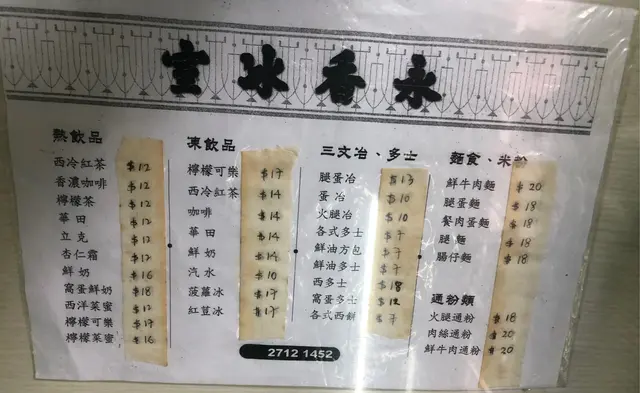 室冰香永
熱飲品
西冷紅茶 $12
香濃咖啡 $12
檸檬茶 $12
華田 $12
立克 $12
杏仁霜 $12
鮮奶 $16
窩蛋鮮奶 $18
西洋菜蜜 $12
檸檬可樂 $17
檸檬菜蜜 $16
凍飲品
檸檬可樂 $17
西冷紅茶 $14
咖啡 $14
華田 $14
鮮奶 $14
汽水 $10
菠蘿冰 $17
紅荳冰 $17
三文冶、多士
腿蛋冶 $13
蛋冶 $10
火腿冶 $10
各式多士 $7
鮮油方包 $7
鮮油多士 $7
西多士 $18
窩蛋多士 $12
各式西餅 $7
麵食、米粉
鮮牛肉麵 $20
腿蛋麵 $18
餐肉蛋麵 $18
腿麵 $18
腸仔麵 $18
通粉類
火腿通粉 $18
肉絲通粉 $20
鮮牛肉通粉 $20
2712 1452